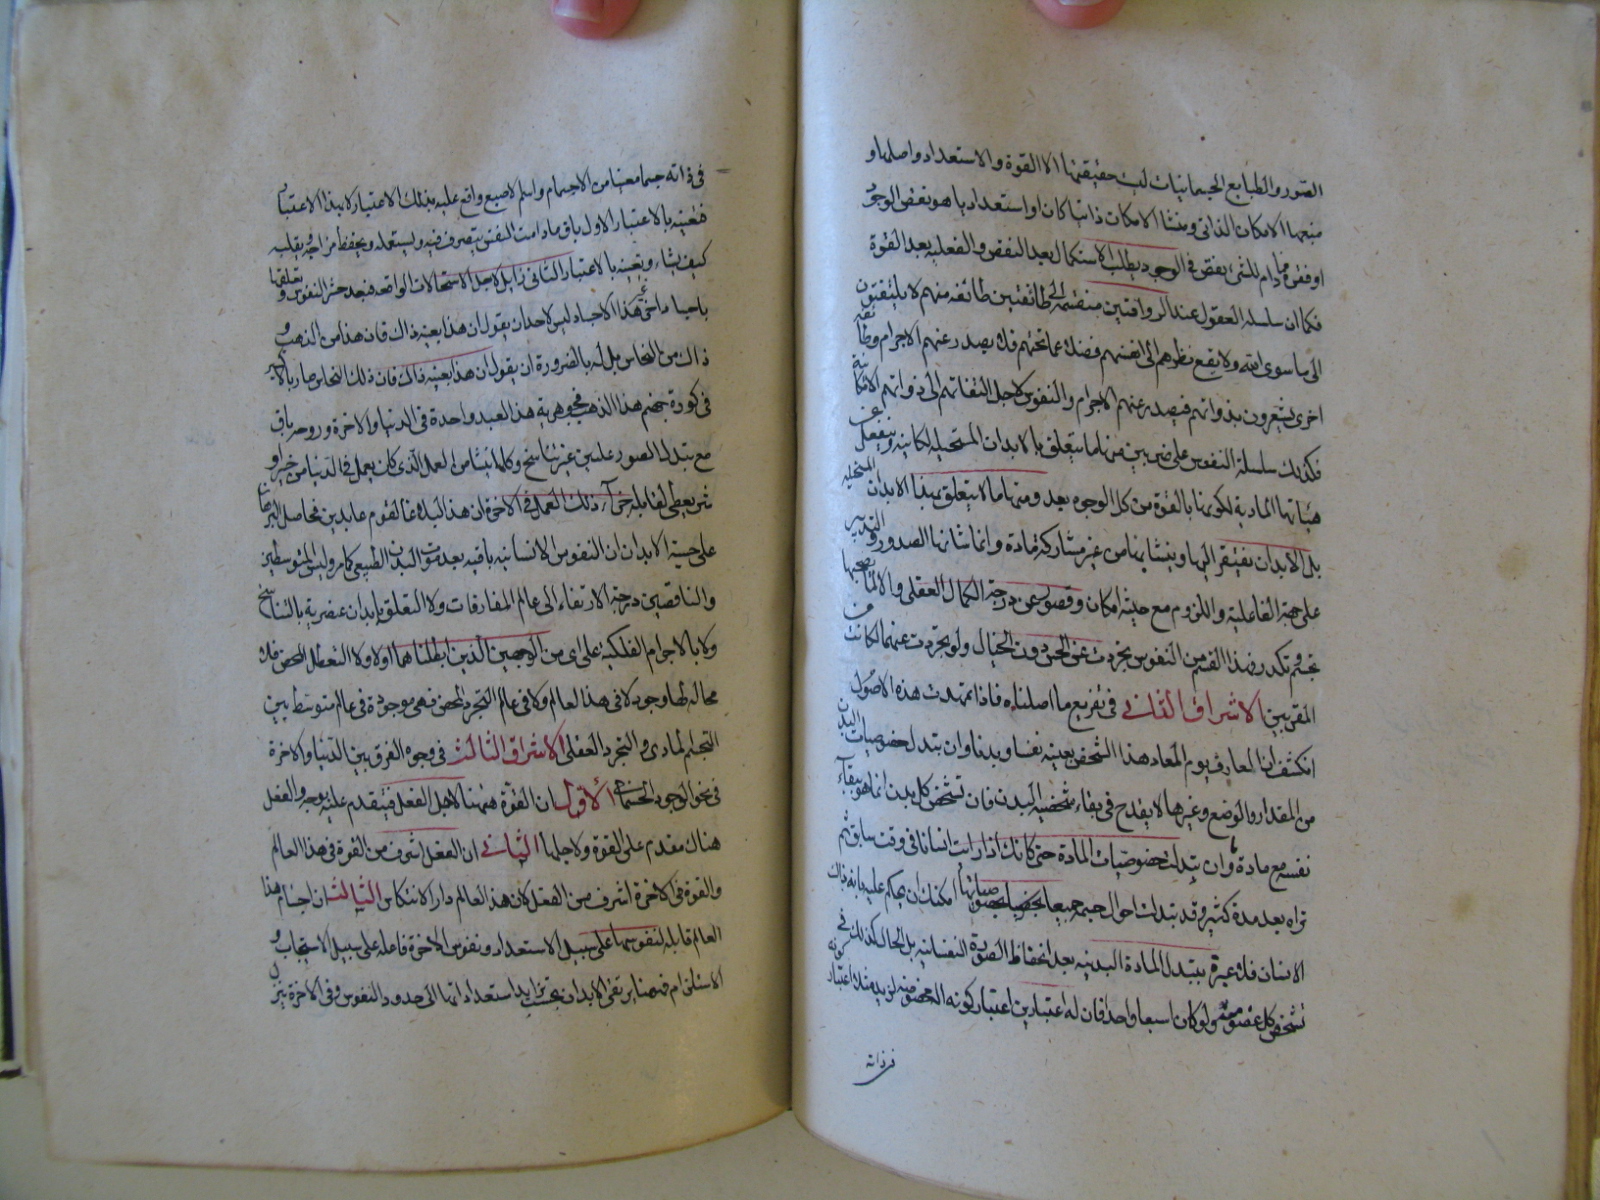 الصور والطبايع الجسمانيات ليست حقيقتها الا القوة والاستعداد واصلها و
منبعها الامكان الذاتى ومنشا الامكان ذاتيا كان او استعداديا هو نقص الوجود
او فقره فما دام للشىء نقص فى الوجود يطلب الاستكمال بعد النقص والفعلية بعد القوة
فكما ان سلسلة العقول عند الرواقيين منقسمة الى طائفتين طائفة منهم لا يلتفتون
الى ما سوى الله ولا يقع نظرهم الى انفسهم فضلا عما تحتهم فلا يصدر عنهم الاجرام وطائفة
اخرى يشعرون بذواتهم فيصدر عنهم الاجرام والنفوس لاجل التفاتهم الى ذواتهم الامكانية
فكذلك سلسلة النفوس على ضربين منها ما يتعلق بالابدان المستحيلة الكاينة وينفعل عن
هيئاتها المادية لكونها بالقوة من كل الوجوه بعد ومنها ما لا يتعلق بهذا الابدان المستحيلة
بل الابدان يفتقر اليها وينشا منها من غير مشاركة مادة وانما شانها الصدور والتدبير
على جهة الفاعلية واللزوم مع حيثية امكان وقصور عن درجة الكمال العقلى والالما يصحبها
تجسم وتكدر فهذا القسم من النفوس تجردت عن الحس دون الخيال ولو تجردت عنهما لكانت من
المقربين الاشراق الثانى فى تفريع ما اصلناه فاذا تمهدت هذه الاصول
انكشف ان المعاد فى يوم المعاد هذا الشخص بعينه نفسا وبدنا وان تبدل خصوصيات البدن
من المقدار والوضع وغيرها لا يقدح فى بقاء شخصية البدن فان تشخص كل بدن انما هو ببقاء
نفسه مع مادة ما وان تبدلت خصوصيات المادة حتى كانك اذا رايت انسانا فى وقت سابق ثم
تراه بعد مدة كثيرة وقد تبدلت احوال جسمه جميعا بخصوصياتها امكنك ان يحكم عليه بانه ذاك
الانسان فلا عبرة بتبدل المادة البدنية بعد انحفاظ الصورة النفسانية بل الحال كذلك فى
تشخص كل عضو منه ولو كان اصبعا واحد فان له اعتبارين اعتبار كونه الة مخصوصة لزيد مثلا واعتبار كونه
فى ذاته
فى ذاته جسما معينا من الاجسام واسم الاصبع واقع عليه بذلك الاعتبار لا بهذا الاعتبار
فتعينه بالاعتبار الاول باق مادامت النفس يتصرف فيه ويستعمله ويحفظ مزاجه ويقلبه
كيف يشاء وتعينه بالاعتبار الثانى زايل لاجل الاستحالات الواقعة فبعد حشر النفوس وتعلقها
باجساد اخرى غير هذا الاجساد ليس لاحد ان يقول ان هذا بعينه ذاك فان هذا من الذهب و
ذاك من النحاس بل له بالضرورة ان يقول ان هذا بعينه ذاك فان ذلك النحاس صار بالاكسير
فى كورة جهنم هذا الذهب فجوهرية هذا العبد واحدة فى الدنيا والاخرة وروحه باق
مع تبدل الصور عليه من غير تناسخ وكلما ينشا من العمل الذى كان يعمل فى الدنيا من خير او
شر يعطى لقابله جزاء ذلك العمل فى الاخرة ان هذا لبلاغا لقوم عابدين فحاصل البرهان
على حشر الابدان ان النفوس الانسانية باقية بعد موت البدن الطبيعى كما مر وليس للمتوسطين
والناقصين درجة الارتقاء الى عالم المفارقات ولا التعلق بابدان عنصرية بالتناسخ
ولا بالاجرام الفلكية على اى من الوجهين الذين ابطلناهما اولا ولا التعطل المحض فلا
محالة لها وجود لا فى هذا العالم ولا فى عالم التجرد المحض فهى موجودة فى عالم متوسط بين
التجسم المادى والتجرد العقلى الاشراق الثالث فى وجوه الفرق بين الدنيا والاخرة
فى نحو الوجود الجسمانى الاول ان القوة ههنا لاجل الفعل فيتقدم عليه بوجه والفعل
هناك مقدم على القوة ولاجلها الثانى ان الفعل اشرف من القوة فى هذا العالم
والقوة فى الاخرة اشرف من الفعل لان هذا العالم دار الانتكاس الثالث ان اجسام هذا
العالم قابلة لنفوسها على سبيل الاستعداد ونفوس الاخرة فاعلة على سبيل الاستيجاب و
الاستلزام فههنا يرتقى الابدان بحسب تزايد استعداداتها الى حدود النفوس وفى الاخرة يتنزل